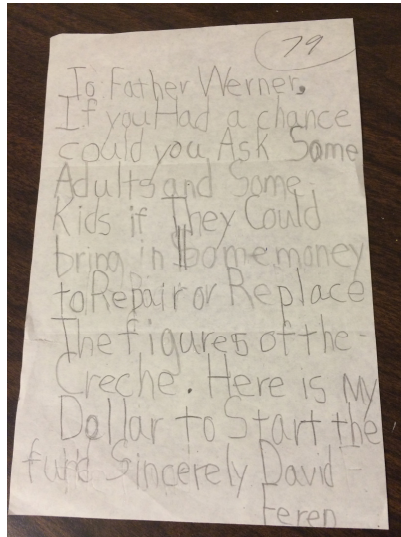 79
To Father Werner.
If you Had a chance
could you Ask Some
Adults and Some
Kids if They Could
bring in Some money
to Repair or Replace
The figures of the
Creche. Here is My
Dollar to Start the
fund Sincerely David
Feren